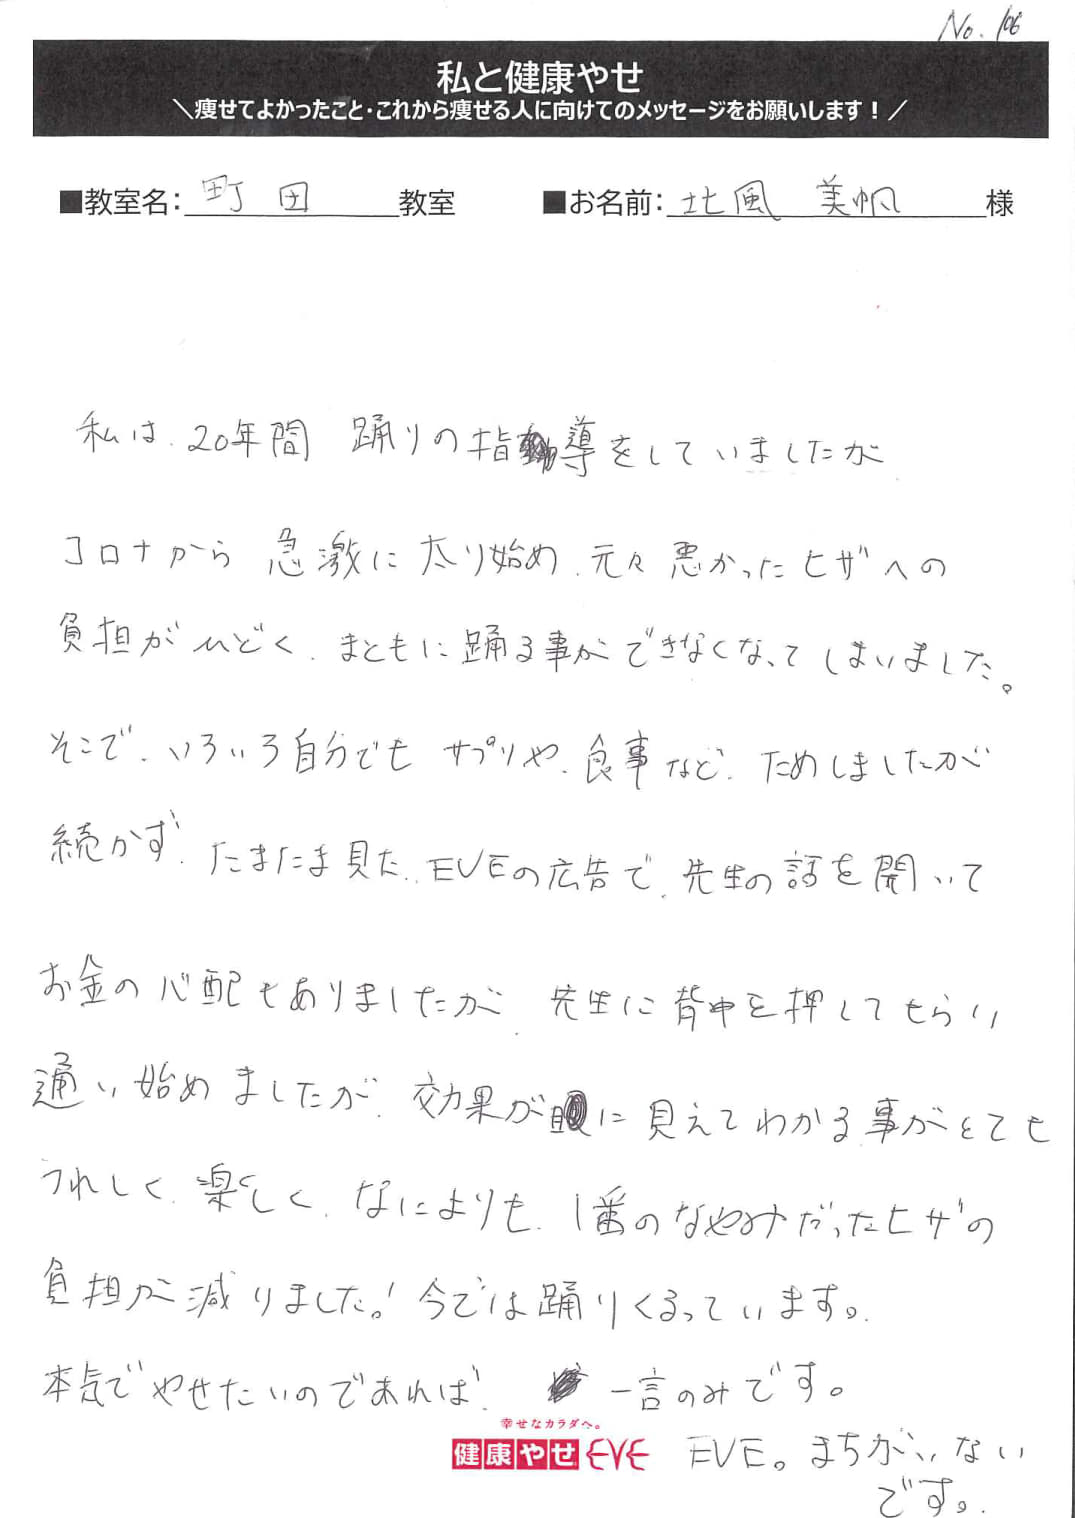 No. 106
私と健康やせ
＼痩せてよかったこと・これから痩せる人に向けてのメッセージをお願いします！／
■教室名：町田教室 ■お名前：北風 美帆様
私は、20年間 踊りの指導をしていましたが
コロナから 急激に太り始め、元々悪かったヒザへの
負担がひどく、まともに踊る事ができなくなってしまいました。
そこで、いろいろ自分でも サプリや、食事など、ためしましたが
続かず、たまたま見た、EVEの広告で、先生の話を聞いて
お金の心配もありましたが、先生に背中を押してもらい
通い始めましたが、効果が目に見えてわかる事がとても
うれしく、楽しく、なによりも、1番のなやみだったヒザの
負担が減りました！今では踊りくるっています。
本気でやせたいのであれば、一言のみです。
EVE。まちがいない
です。
幸せなカラダへ。
健康やせEVE